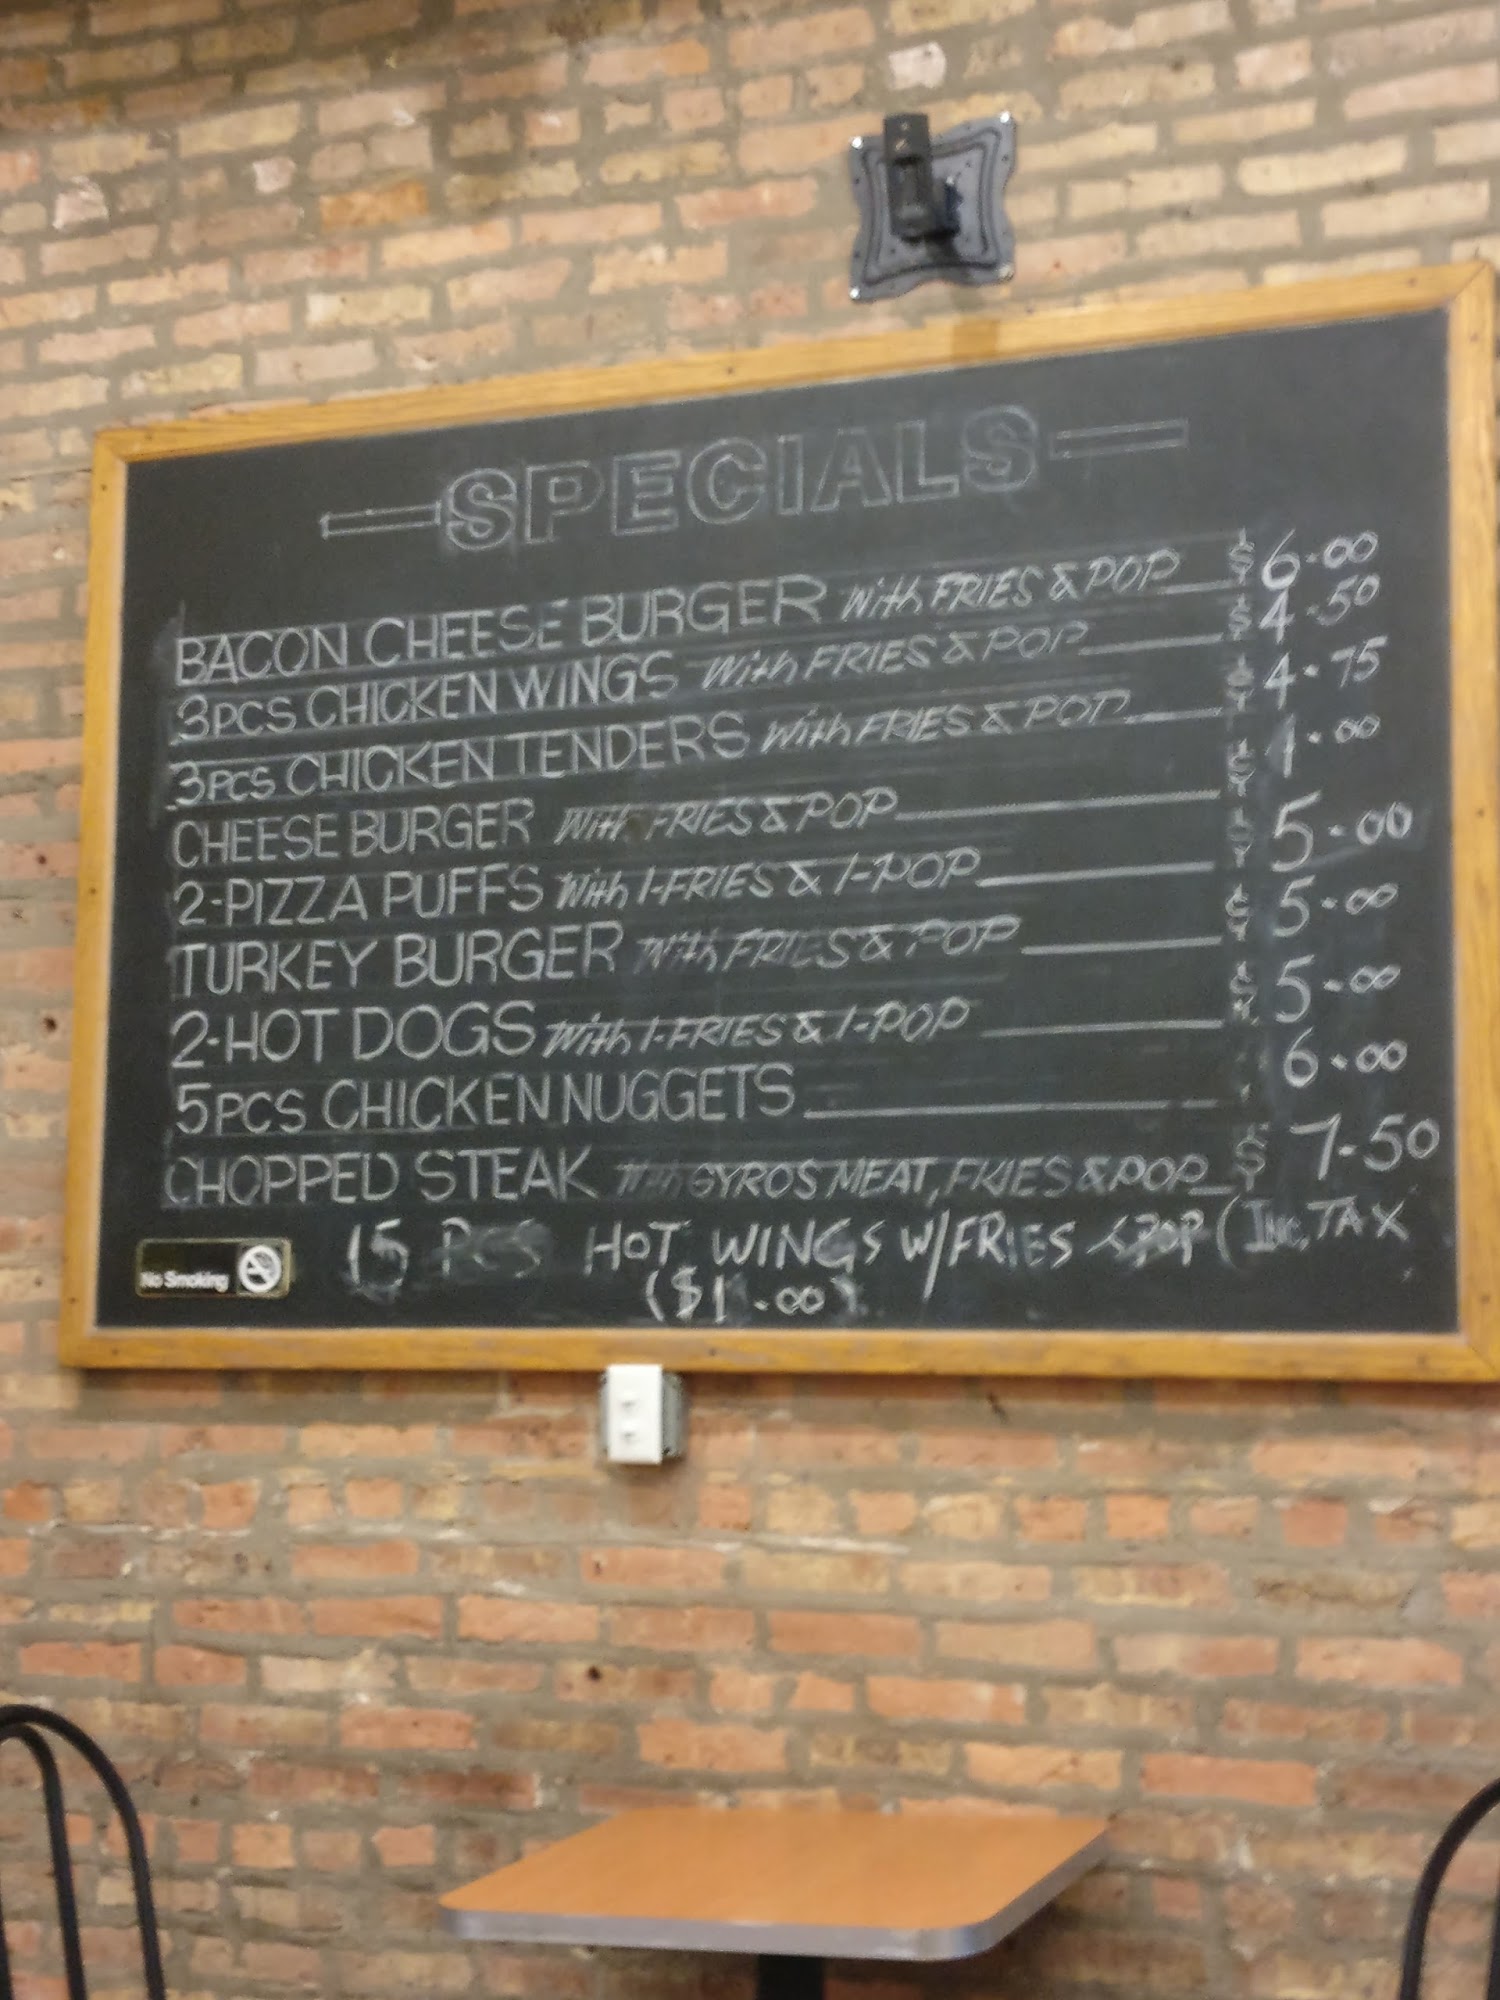 SPECIALS
BACON CHEESE BURGER with FRIES & POP $ 6.00
3PCS CHICKEN WINGS with FRIES & POP $ 4.50
3PCS CHICKEN TENDERS with FRIES & POP $ 4.75
CHEESE BURGER with FRIES & POP .00
2-PIZZA PUFFS with 1-FRIES & 1-POP 5.00
TURKEY BURGER with FRIES & POP 5.00
2-HOT DOGS with 1-FRIES & 1-POP 5.00
5PCS CHICKEN NUGGETS 6.00
CHOPPED STEAK with GYROS MEAT, FRIES & POP $ 7-50
15 PCS HOT WINGS W/FRIES & POP (INC, TAX
($1 .00)
No Smoking